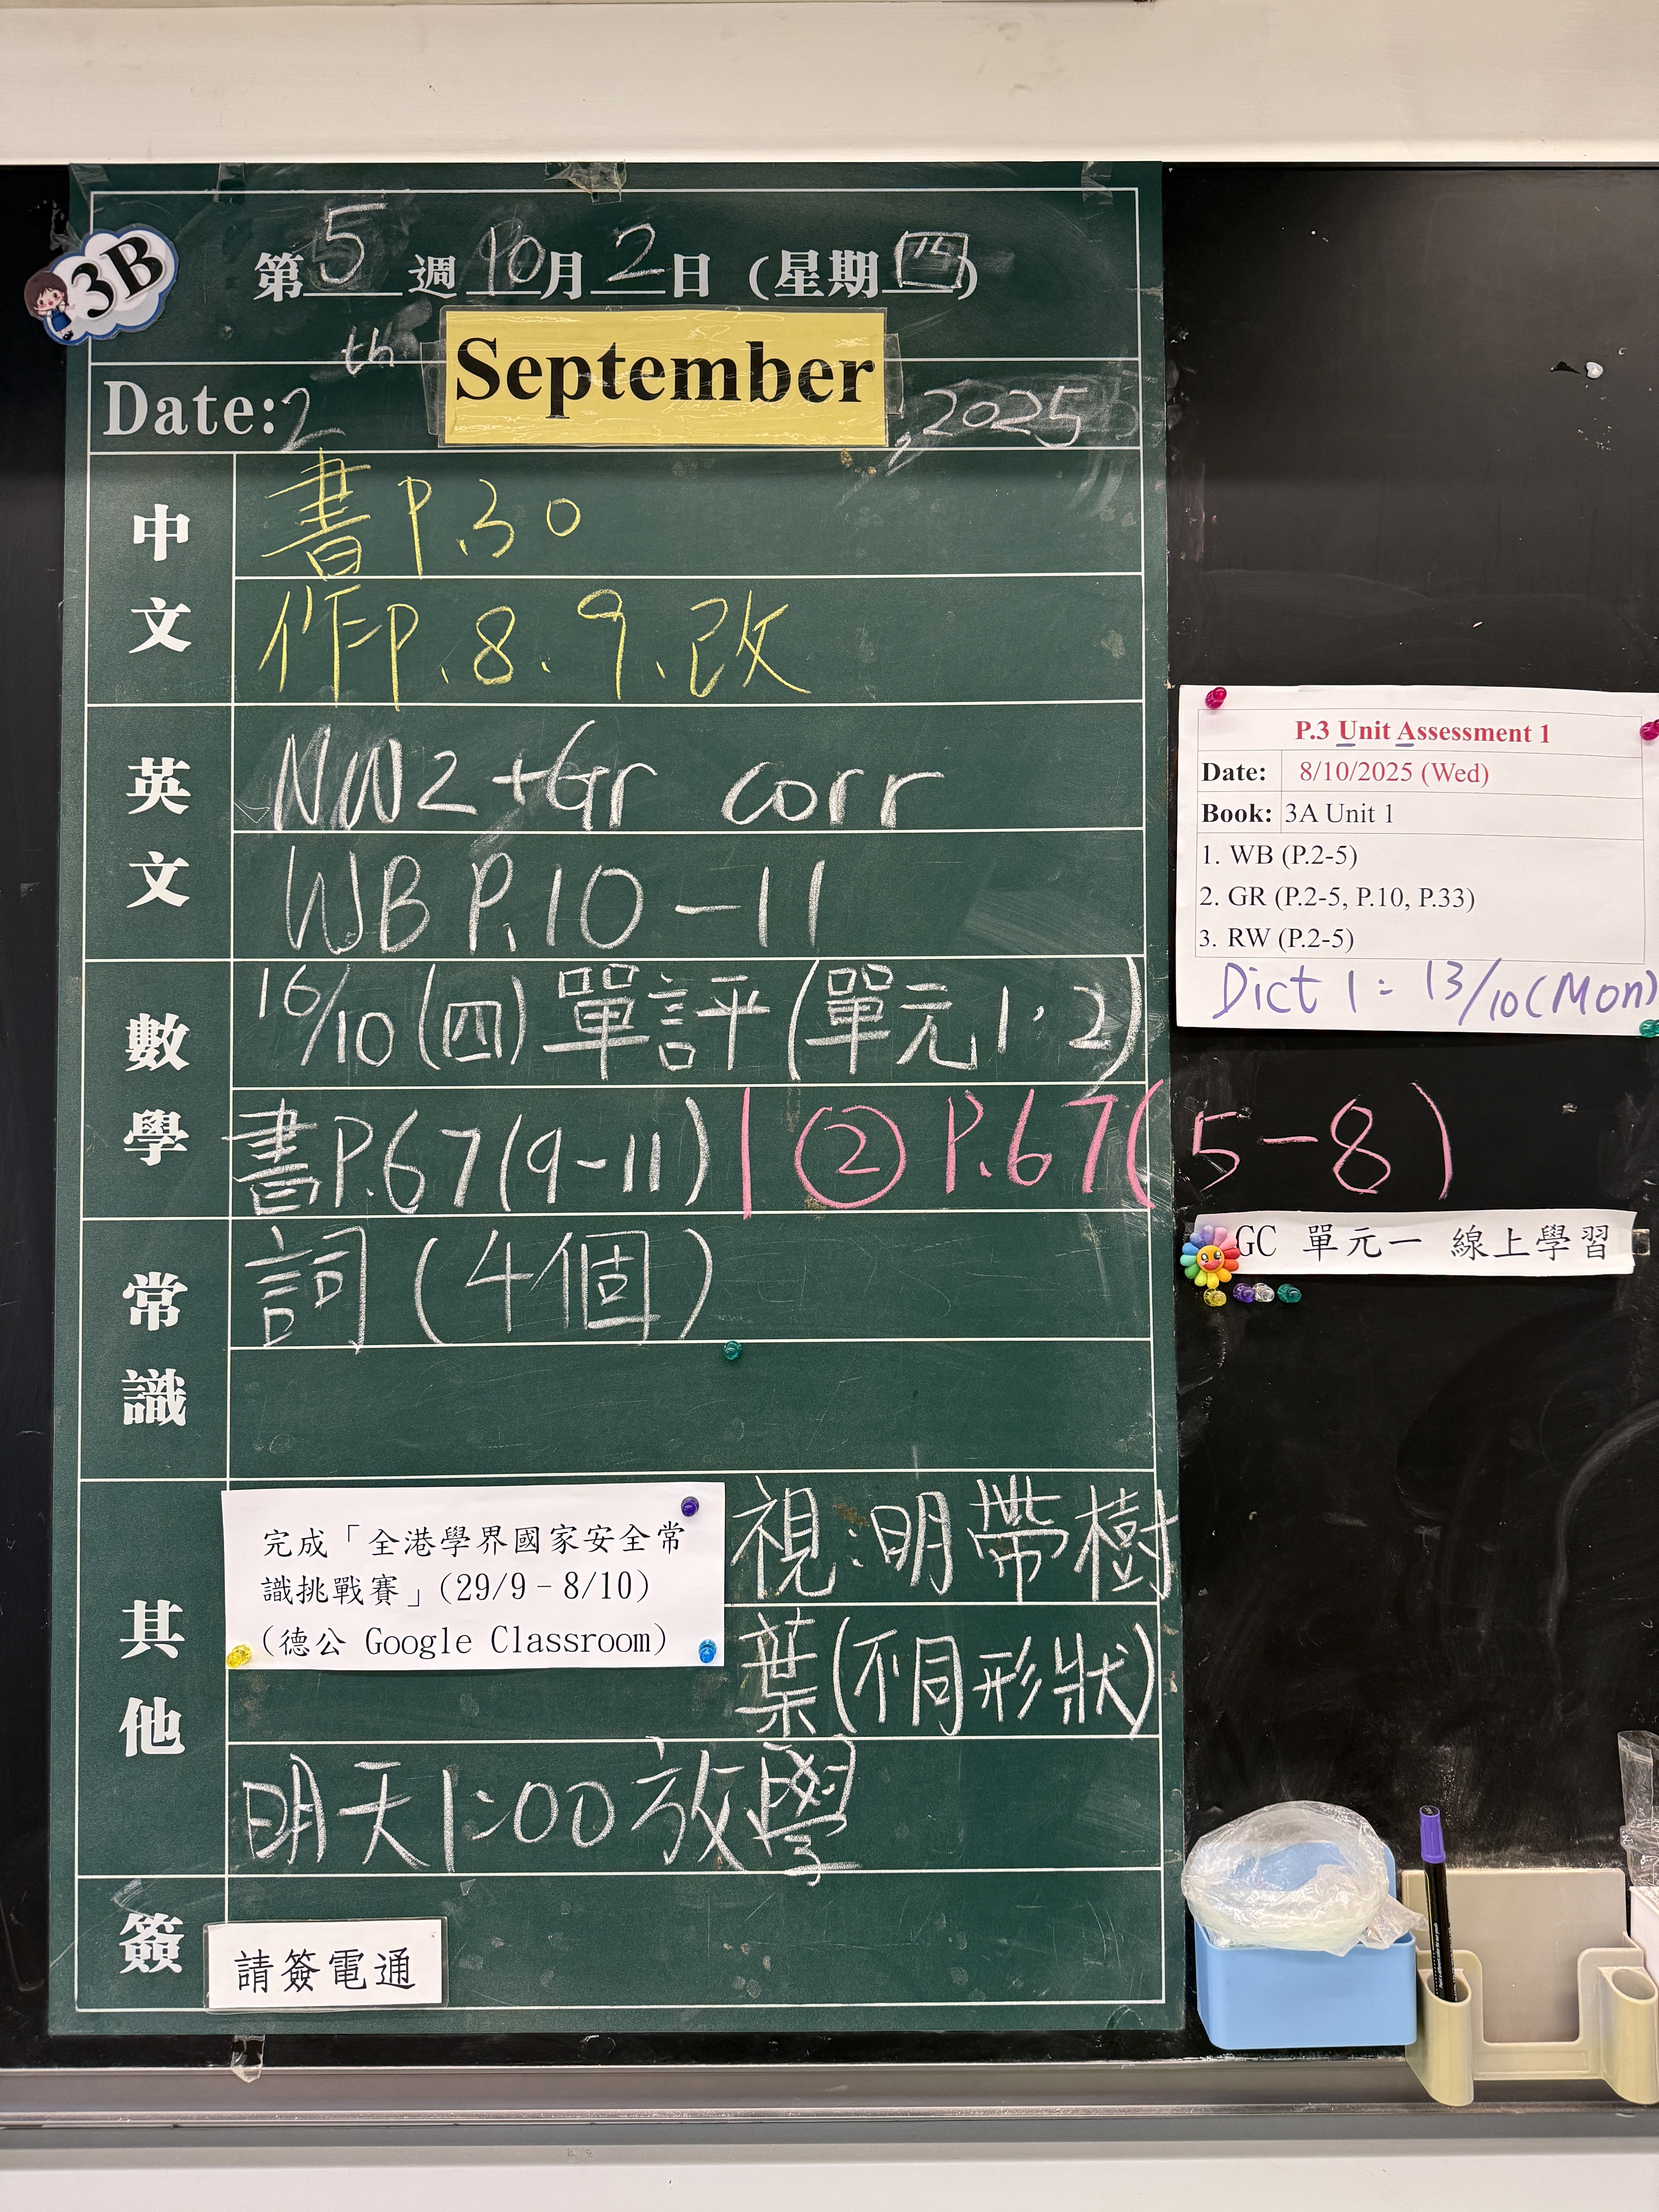 3B
第5週10月2日(星期四)
Date: 2th September, 2025
中文
書P.30
作P.8、9、改
英文
NW2+Gr corr
WB P.10-11
數學
16/10(四)單評(單元1、2)
書P.67(9-11) | ② P.67(5-8)
常識
詞(4個)
其他
完成「全港學界國家安全常
識挑戰賽」(29/9–8/10)
(德公 Google Classroom)
視:明帶樹
葉(不同形狀)
明天1:00放學
簽
請簽電通
P.3 Unit Assessment 1
Date: 8/10/2025 (Wed)
Book: 3A Unit 1
1. WB (P.2-5)
2. GR (P.2-5, P.10, P.33)
3. RW (P.2-5)
Dict 1: 13/10(Mon)
GC 單元一 線上學習